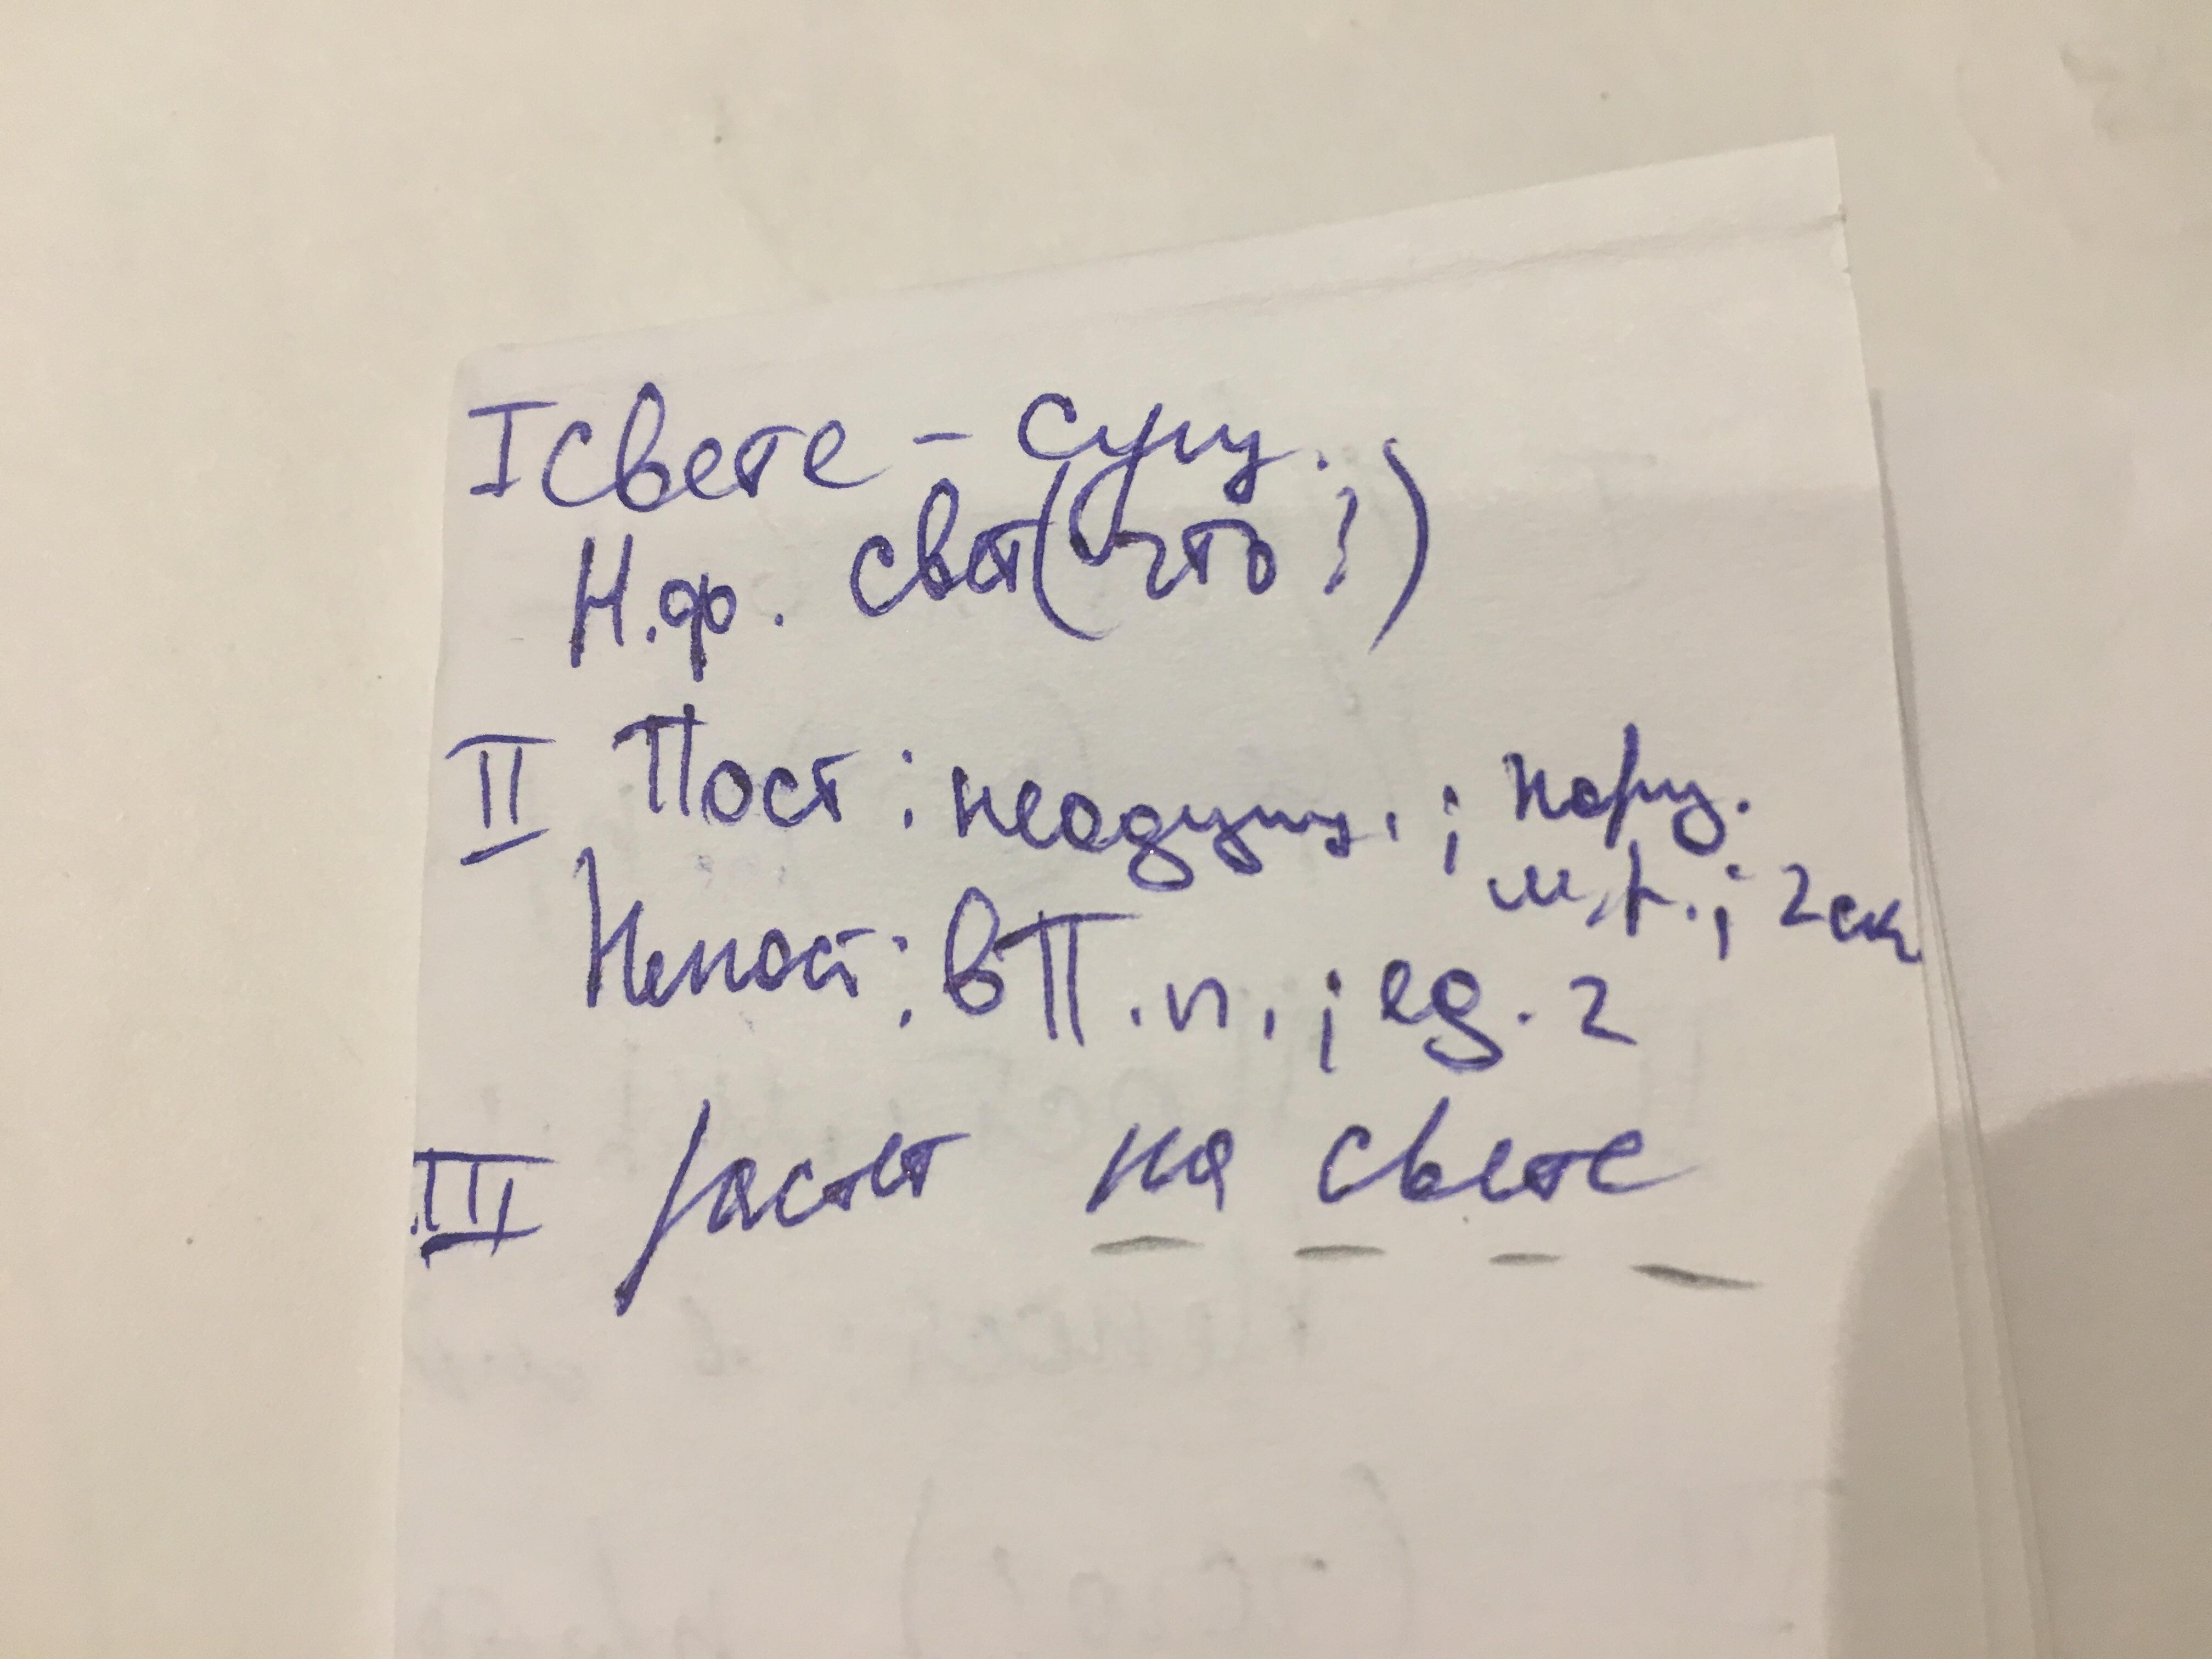 I свете - сущ.
Н.ф. свет (что?)
II Пост: неодуш.; нариц.
м.р.; 2 скл.
Непост: в П.п.; ед. ч
III растет на свете